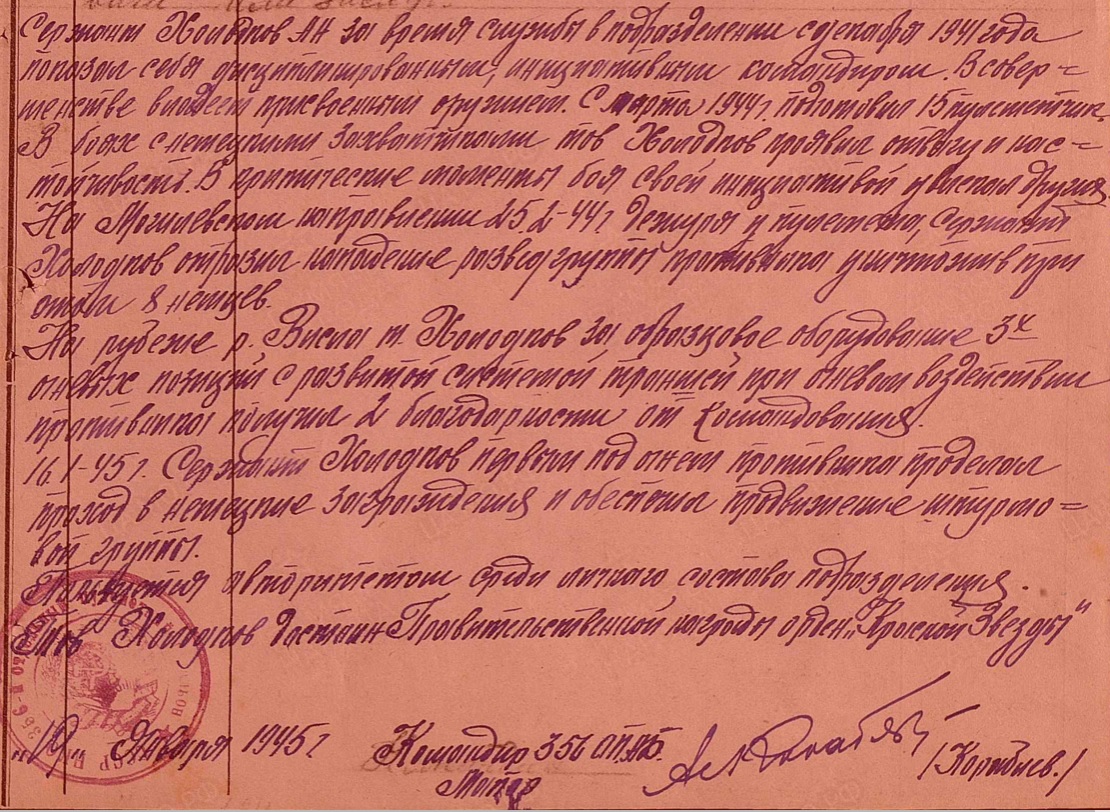 Сержант Холодков АН за время службы в подразделении с декабря 1941 года
показал себя дисциплинированным, инициативным командиром. В совер=
шенстве владеет присвоенным оружием. С марта 1944 г. подготовил 15 пулеметчик.
В боях с немецкими захватчиками тов Холодков проявил отвагу и нас=
тойчивость. В критические моменты боя своей инициативой увлекал других.
На Могилевском направлении 25.2-44 г дежуря у пулемета, Сержант
Холодков отразил нападение развед группы противника уничтожив при
этом 8 немцев.
На рубеже р. Висла т. Холодков за образцовое оборудование 3х
огневых позиций с развитой системой траншей при огневом воздействии
противника получил 2 благодарности от командования.
16.1-45 г. Сержант Холодков первым под огнем противника проделал
проход в немецкие заграждения и обеспечил продвижение штурмо=
вой группы.
Пользуется авторитетом среди личного состава подразделения.
Тов Холодков достоин Правительственной награды орден „Красной Звезды"
Января 1945 г Командир 356
Майор /Кораблев./